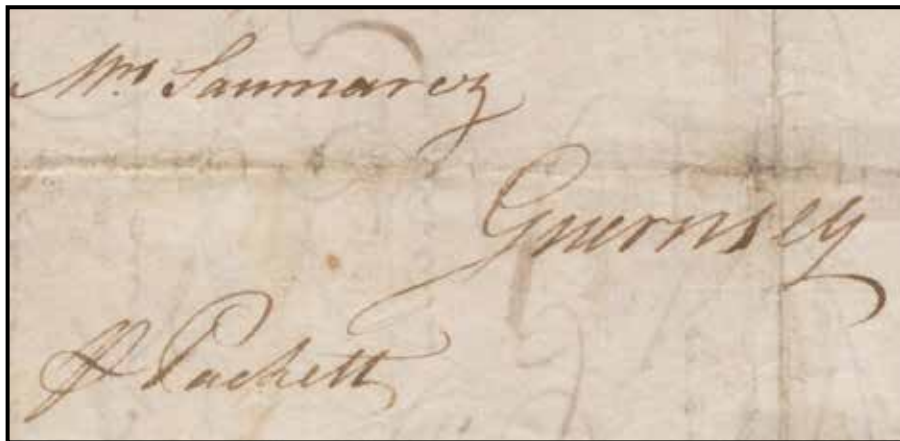 Mrs Saumarez
Guernsey
⅌ Packett